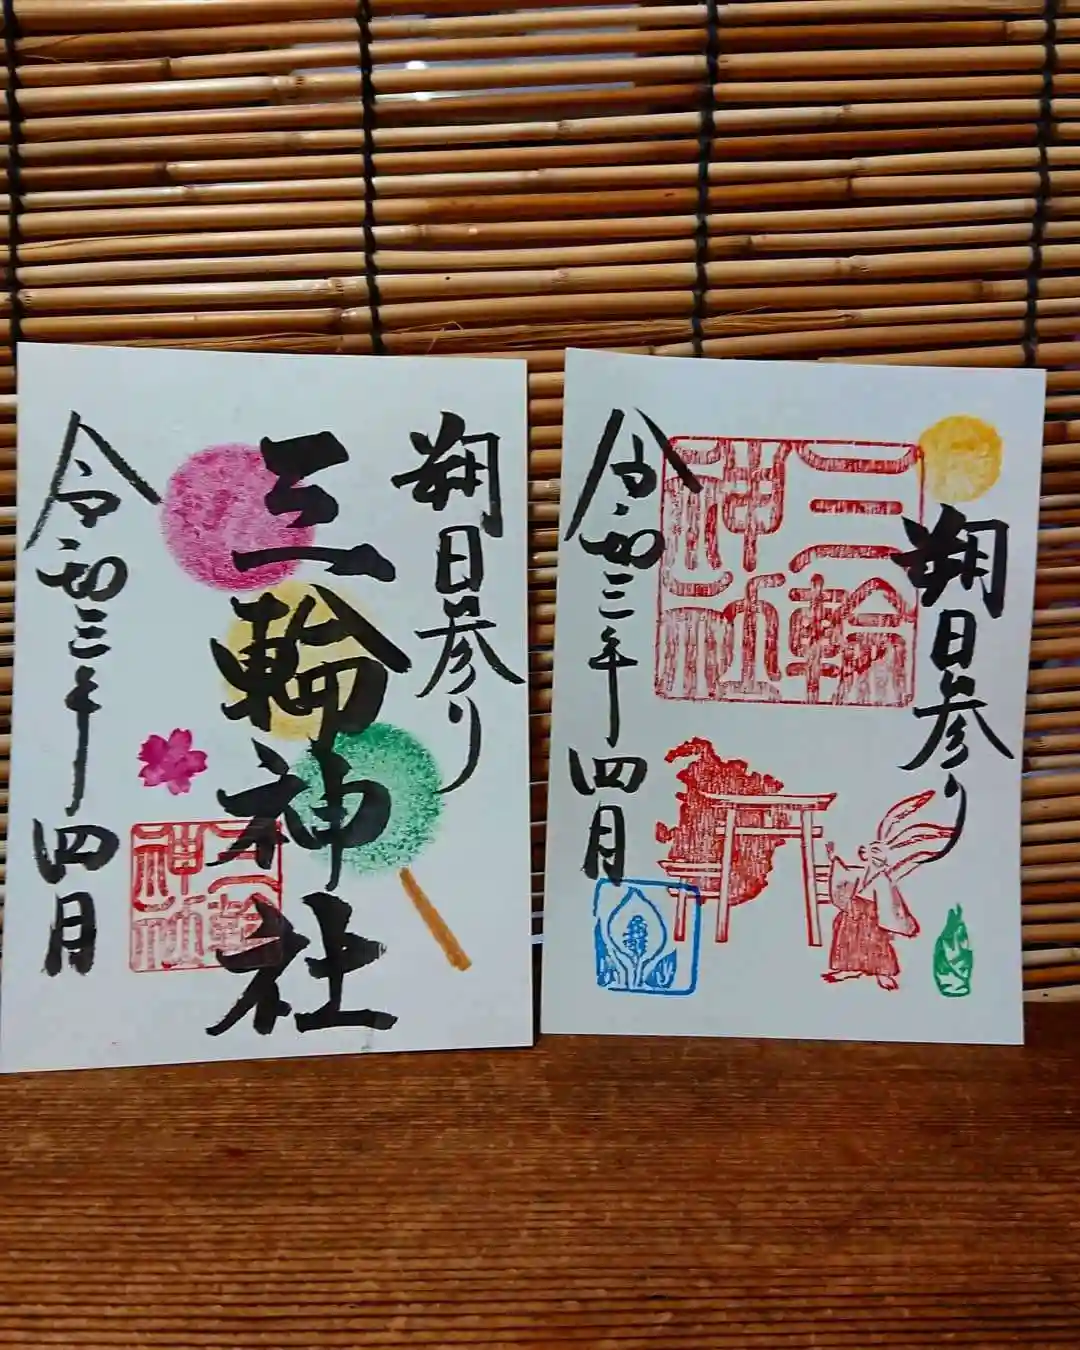 朔日参り
三輪神社
令和三年四月
三輪神社
朔日参り
三輪神社
令和三年四月